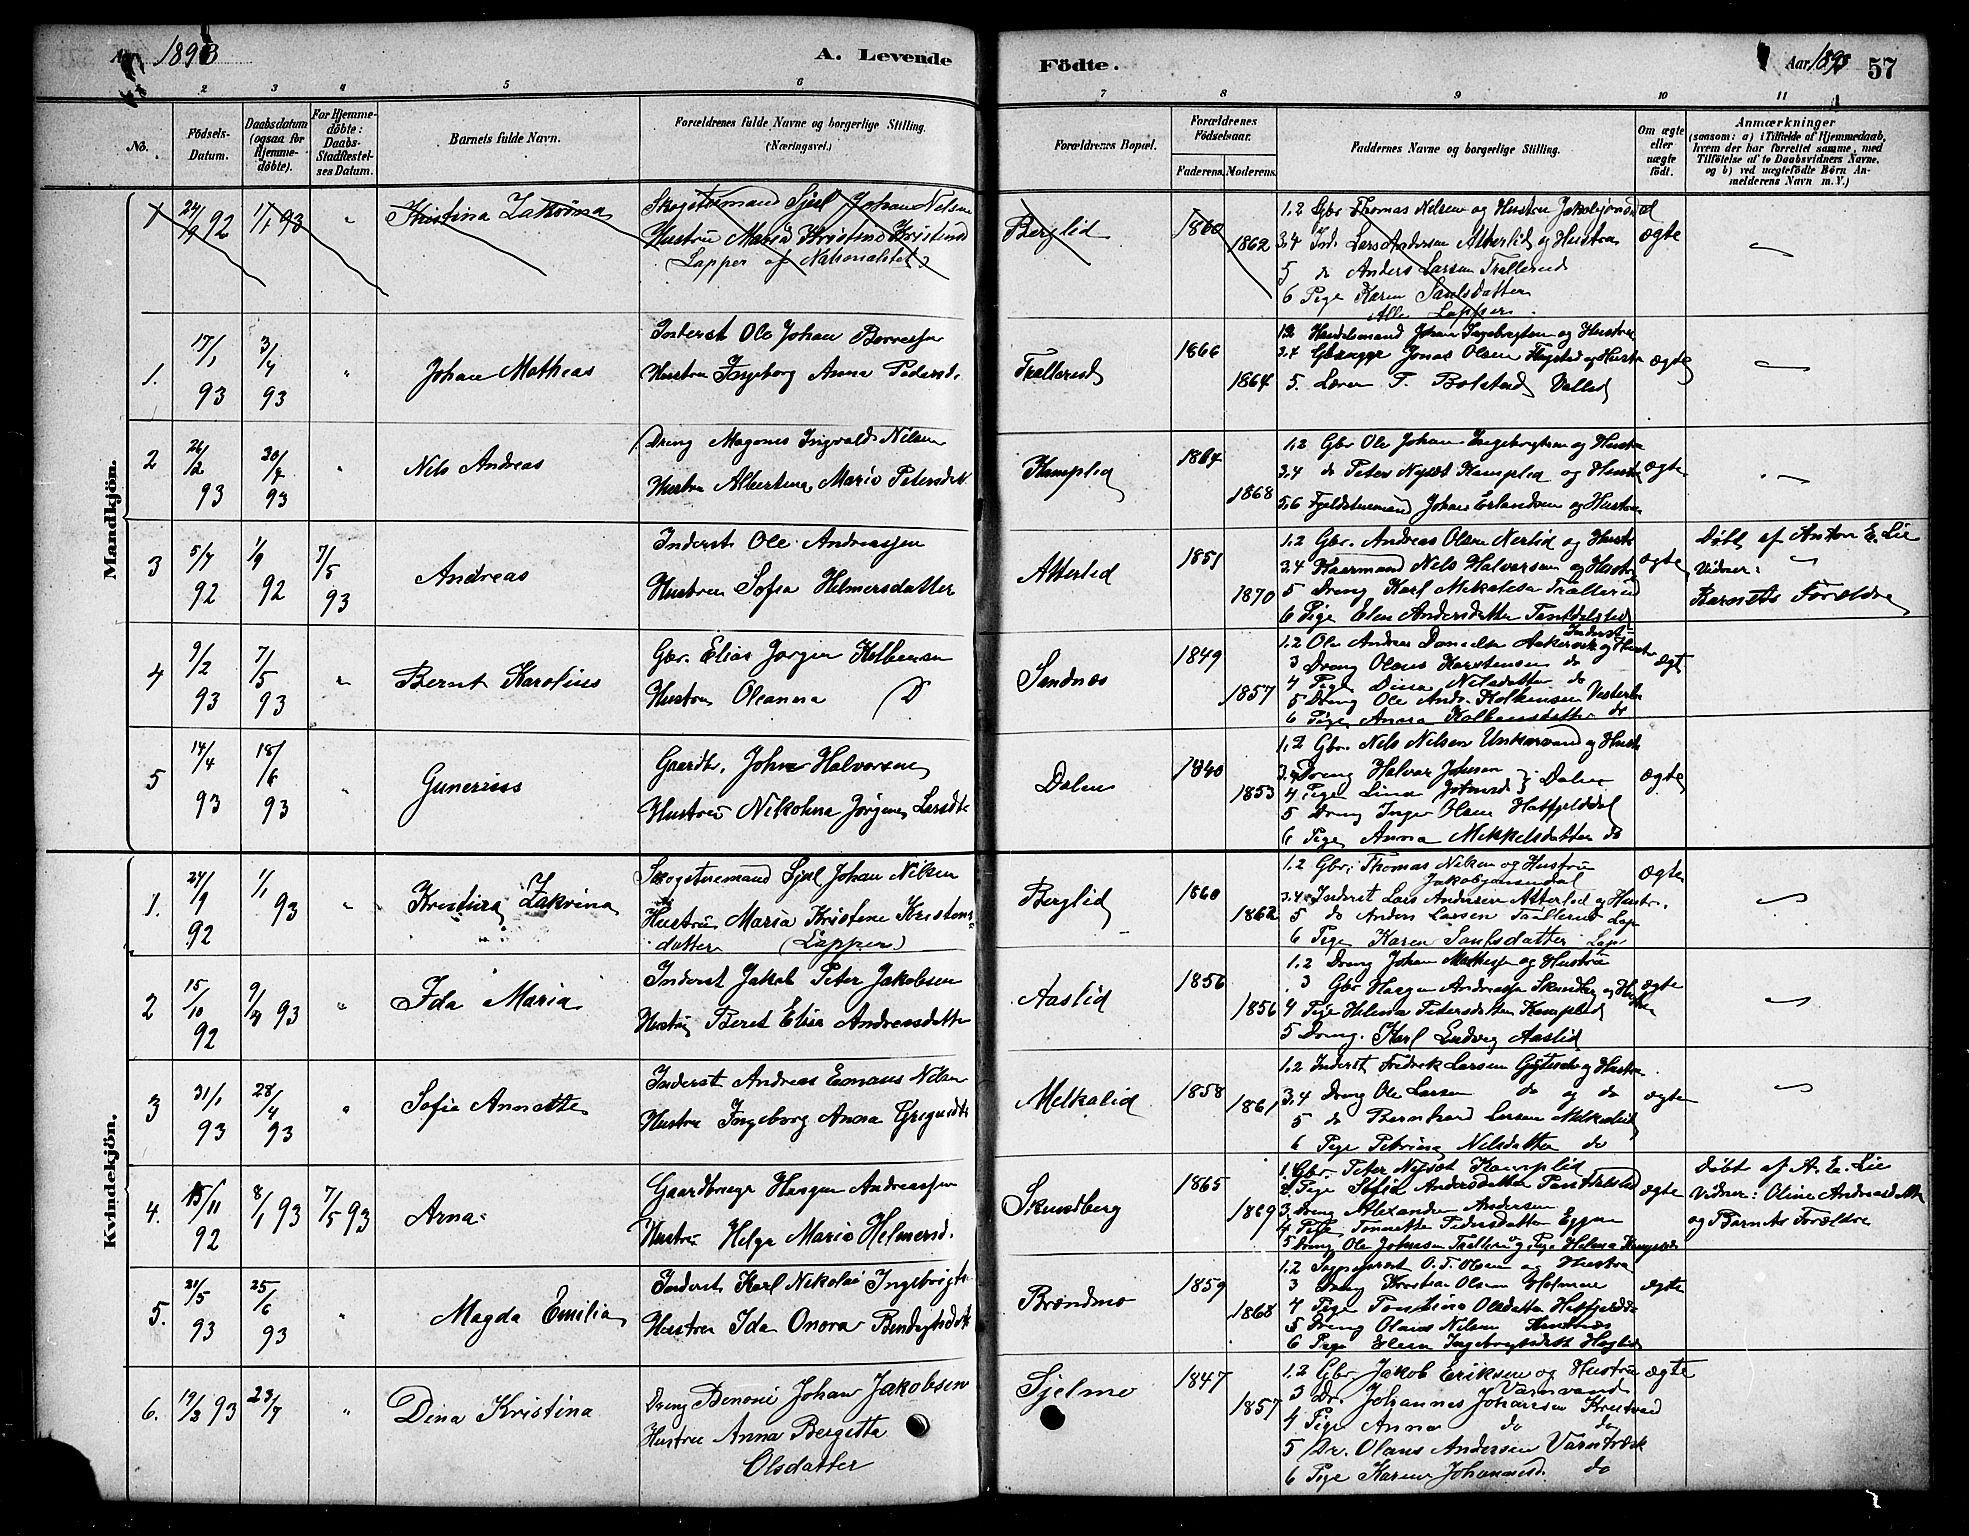 Aar 1893 A. Levende Födte. Aar 1893 57
2 3 4 5 6 7 8 9 10 11
No. Födsels-Datum. Daabsdatum (ogsaa for Hjemmedöbte). For Hjemmedöbte: Daabs-Stadfæstelses Datum. Barnets fulde Navn. Forældrenes fulde Navne og borgerlige Stilling. (Næringsvei.) Forældrenes Bopæl. Forældrenes Födselsaar. Faderens. Moderens. Faddernes Navne og borgerlige Stilling. Om ægte eller uægte födt. Anmærkninger (saasom: a) i Tilfælde af Hjemmedaab, hvem der har forrettet samme, med Tilföielse af to Daabsvidners Navne, og b) ved uægtefödte Börn Anmelderens Navn m. V.)
Mandkjön.
1 24/9 92 1/1 93 " Kristina Zakrina Skogsturmand Sjul Johan Nilsen
Hustru Maria Kristine Kristensd
(Lapper af Nationalitet)
Berglid 1860 1862
1.2 Gbr Thomas Nilsen og Hustru Jakobjonsdal
3.4 Ind. Lars Andersen Atterlid og Hustru
5 do Anders Larsen Trallerud
6 Pige Karen Saulsdatter
Alle Lapper
ægte
1. 17/1 93 3/4 93 " Johan Matheas Inderst Ole Johan
Hustru Ingeborg Anna Pedersd.
Trallerud 1866 1864
12 Handelsmand Johan Ingebrigtsen og Hustru
3.4 Jonas Olsen og Hustru
5. Lærer P. Bolstad
ægte
2 26/2 93 30/4 93 " Nils Andreas Dreng Magnus Ingvald Nilsen
Hustru Albertina Marie Petersdt
Kamplid 1864 1868
1.2 Gbr Ole Johan Ingebrigtsen og Hustru
3.4 do Peter Kamplid og Hustru
5.6 Fjeldstuemand Johan Erlandsen og Hustru
ægte
3 5/7 92 1/9 92 7/5 93 Andreas Inderst Ole Andreassen
Hustru Sofia Helmersdatter
Atterlid 1851 1870
1.2 Gbr. Andreas Olsen Nerlid og Hustr
3.4 Nils Halvorsen og Hustru
5 Dreng Karl Mikalsen Trallerud
6 Pige Elen Andersdatter
ægte Döbt af Anton E. Lie
Vidner:
Barnets Forældre
4 9/2 93 7/5 93 " Bernt Karolius Gbr. Elias Jörgen Kolbensen
Hustru Oleanna D
Sandnæs 1849 1857
Inderst
1.2 Ole Andreas Danielsen og Hustr
3 Dreng Olaus Karstensen do
4 Pige Dina Nilsdatter do
5 Dreng Ole Andr. Kolbensen
6 Pige Anna Kolbensdatter do
ægte
5 14/4 93 18/6 93 " Gunerius Gaardbr. John Halvorsen
Hustru Nikolina Jörgine Larsdtr
Dalen 1840 1853
1.2 Gbr. Nils Nilsen Unkarvand og Hustr
3 Dreng Halvar Johnsen
4 Pige Lina Dalen
5 Dreng Inger Olsen Hatfjelddal
6 Pige Anna Mikkelsdatter do
ægte
Kvindekjön.
1. 24/9 92 1/1 93 " Kristina Zakrina Skogsturemand Sjul Johan Nilsen
Hustru Maria Kristine Kristens-
datter (Lapper)
Berglid 1860 1862
1.2 Gbr. Thomas Nilsen og Hustru
Jakobjonsdal
3.4 Inderst Lars Andersen Atterlid og Hustr.
5 do Anders Larsen Trallerud Lap
6 Pige Karen Saulsdatter Lap
ægte
2 15/10 92 9/4 93 " Ida Maria Inderst Jakob Peter Jakobsen
Hustru Beret Elise Andreasdatter
Aaslid 1856 1856
1.2 Dreng Johan og Hustru
3 Gbr Haagen Andreassen og Hustru
4 Pige Helena Petersdatter Kamplid
5 Dreng. Karl Ludvig Aaslid
ægte
3 31/1 93 28/4 93 " Sofie Annette Inderst Andreas Emaus Nilsen
Hustru Ingeborg Anna
Melkalid 1858 1861
1.2 Inderst Fredrik Larsen og Hustru
3.4 Dreng Ole Larsen do og do
5 do Bernhard Larsen Melkalid
6 Pige Petrina Nilsdatter do
ægte
4. 15/11 92 8/1 93 7/5 93 Arna Gaardbruger Haagen Andreassen
Hustru Helga Marie Helmersd.
Skundberg 1865 1869
1. Gbr Peter Kamplid
2. Pige Sofie Andersdatter
3 Dreng Alexander Andersen
4 Pige Tonnette Pedersdatter
5 Dreng Ole Johnsen Trallerud Pige Helena Kamplid
ægte Döbt af A. E. Lie
Vidner: Oline Andreasdatter
og Barnets Forældre
5. 21/5 93 25/6 93 " Magda Emilia Inderst Karl Nikolai Ingebrigts.
Hustru Ida Onora
Brændmo 1859 1868
1.2 O. T. Olsen og Hustru
3 Dreng Kristian Olsen Holmen
4 Pige Olsdatter Hatfjelddal
5 Dreng Olaus Nilsen
6 Pige Elen Ingebrigtsdatt
ægte
6. 19/3 93 23/7 " Dina Kristina Dreng Benoni Johan Jakobsen
Hustru Anna Bergitta
Olsdatter
Sjelmo 1847 1857
1.2 Gbr Jakob Eriksen og Hustru
Varnvand
3 Dr. Johannes Johansen
4 Pige Anna do do
5 Dr. Olaus Andersen Varntræsk
6 Pige Karen Johannesd. do
ægte